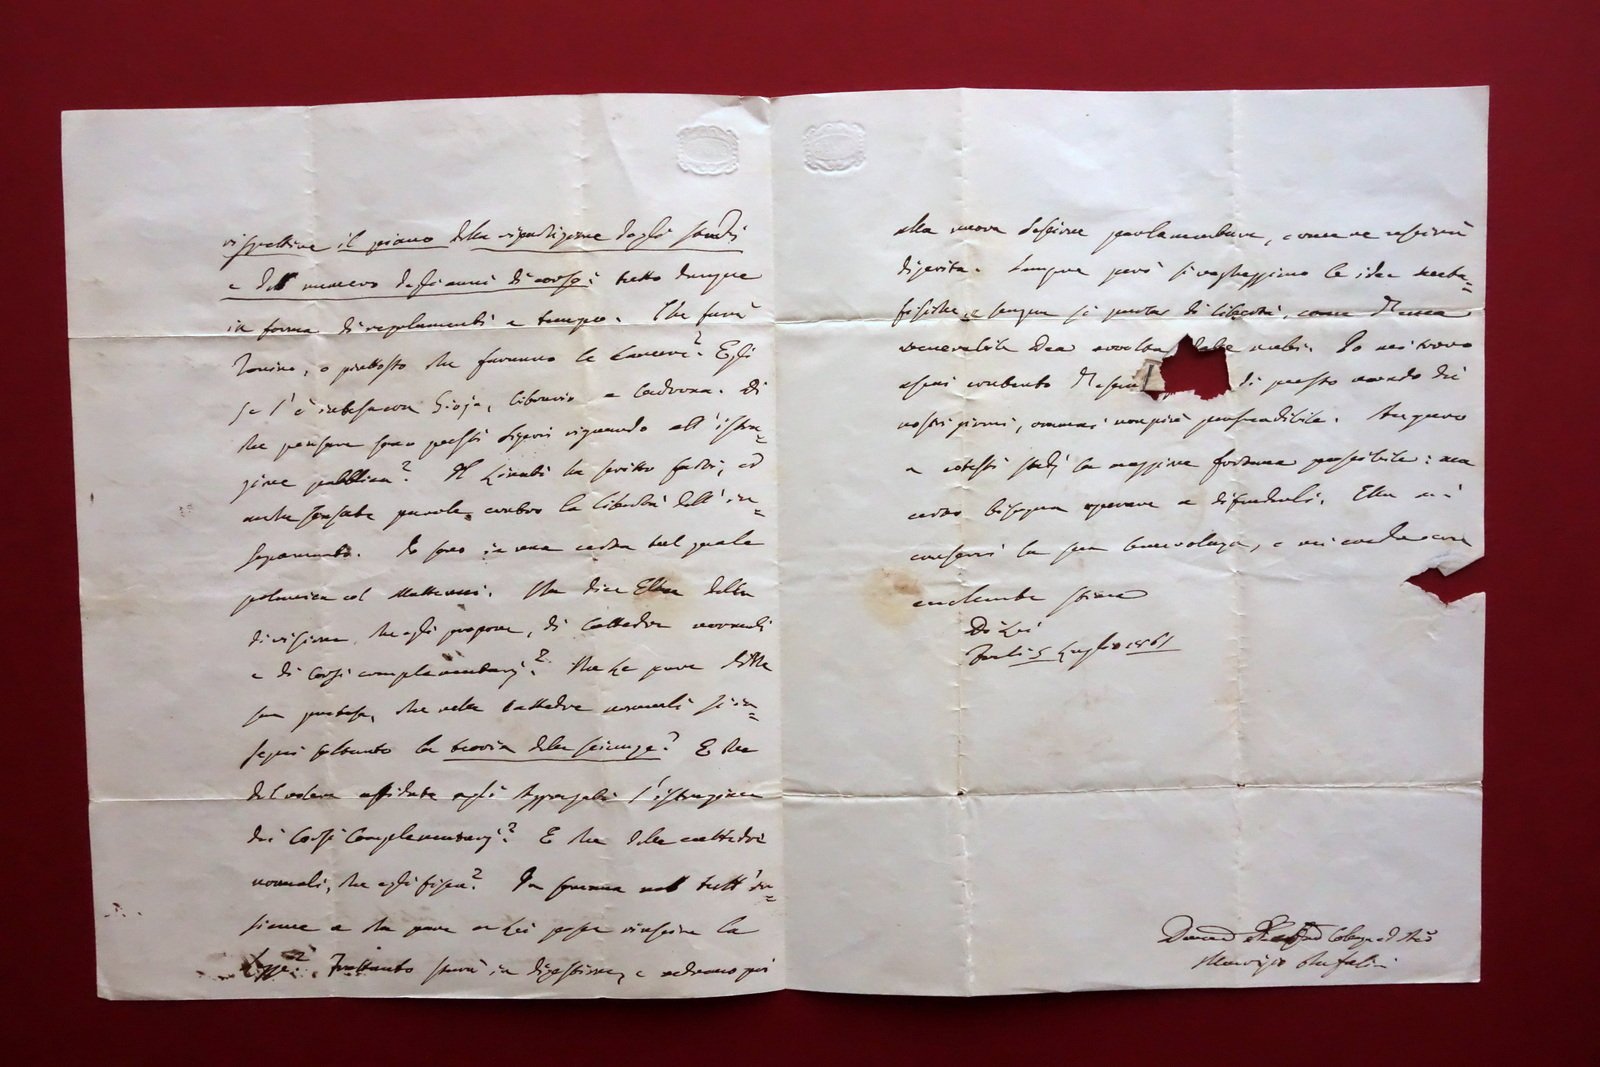 rispettive il piano della ripartizione degli studi
e del numero degli anni di corso: tutto dunque
in forma di regolamenti e tempo. Che farà
Torino, o piuttosto che faranno le Camere? Egli
se l'è intesa con Gioja, Liborio e Cadorna. Di
che pensare sono questi Signori riguardo all'istru=
zione pubblica? Il Linati ha scritto fatti, ed
anche sensate parole contro la libertà dell'in=
segnamento. Io sono in una certa tal quale
polemica col Matteucci. Che dice Ella della
divisione, che egli propone, di Cattedre normali
e di Corsi complementari? Che Le pare della
sua pretesa, che nelle Cattedre normali si in=
segni soltanto la teoria della scienza? E che
del volere affidata agli Aggregati l'istruzione
dei Corsi Complementarj? E che delle cattedre
normali, che egli fissa? In somma nell tutt'in=
sieme a che pare a Lei possa riuscire la
legge? Frattanto starà in digestione, e vedremo poi
alla nuova Sessione parlamentare, come ne uscirà
digerita. Sempre però si vagheggiano le idee meta=
fisiche, e sempre si parla di libertà, come d'una
venerabile Dea avvolta dalle nubi. Io mi trovo
assai contento d'esser di questo mondo dei
nostri giorni, ormai non più godibile. Auguro
a cotesti studj la maggiore fortuna possibile: ma
certo bisogna operare a difenderli. Ella mi
conservi la sua benevolenza, e mi creda con
anche stima
Di Lei
Forlì 5 Luglio 1861
Dev Collega ed Am
Maurizio Bufalini